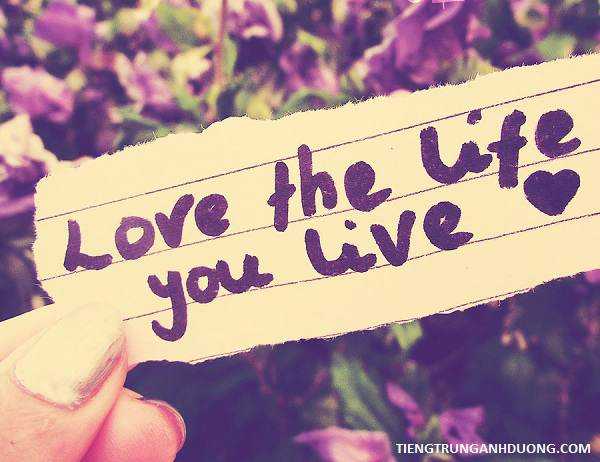 Love the life
you live ♥
TIENGTRUNGANHDUONG.COM